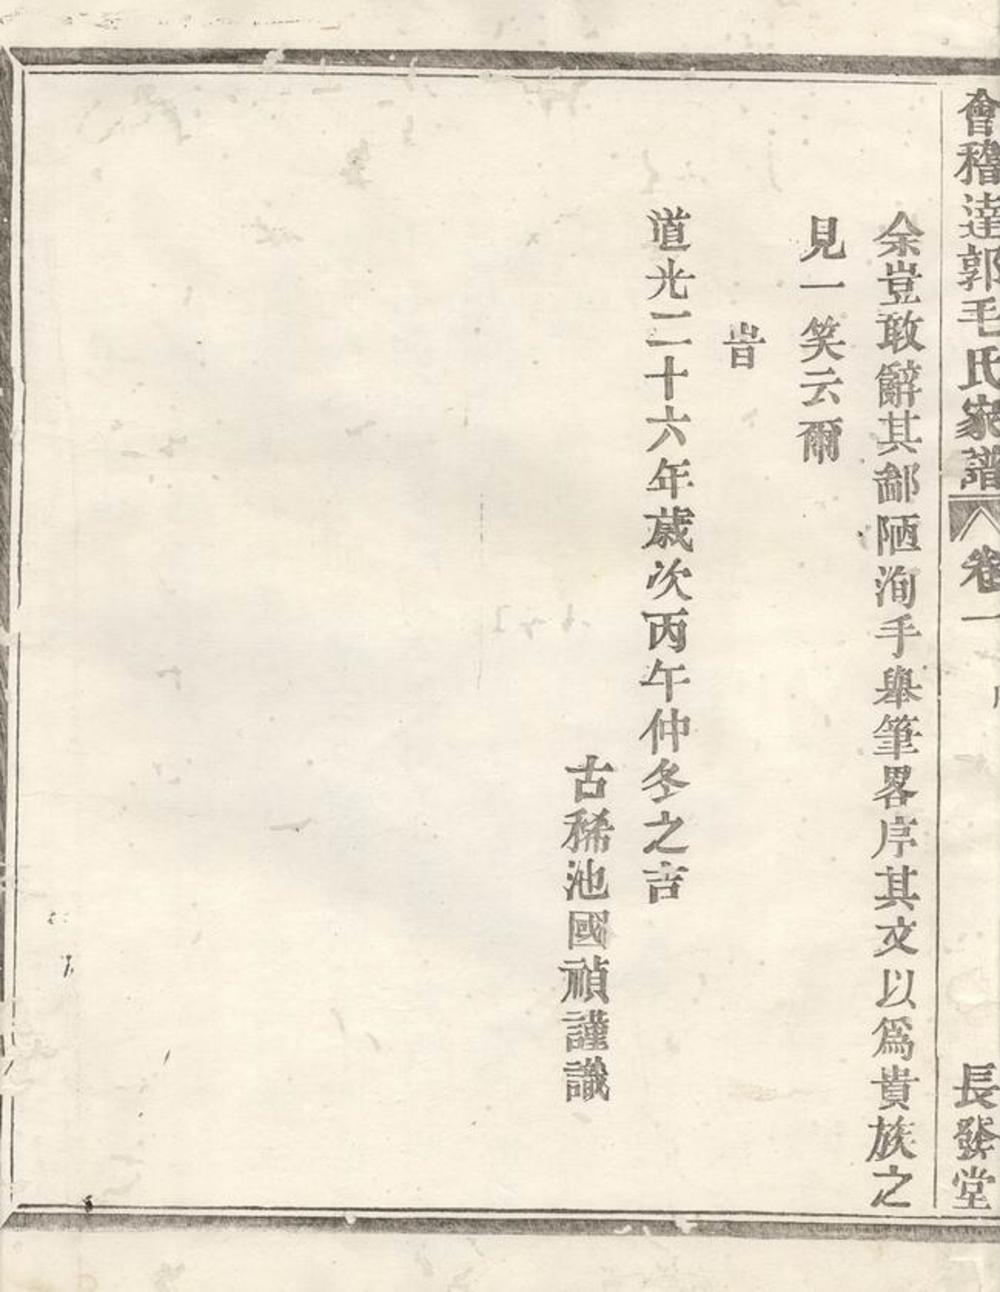 會稽達郭毛氏家譜 卷一 長發堂
余豈敢辭其鄙陋洵手舉筆畧序其文以爲貴族之
見一笑云爾
旹
道光二十六年歲次丙午仲冬之吉
古稀池國禎謹識